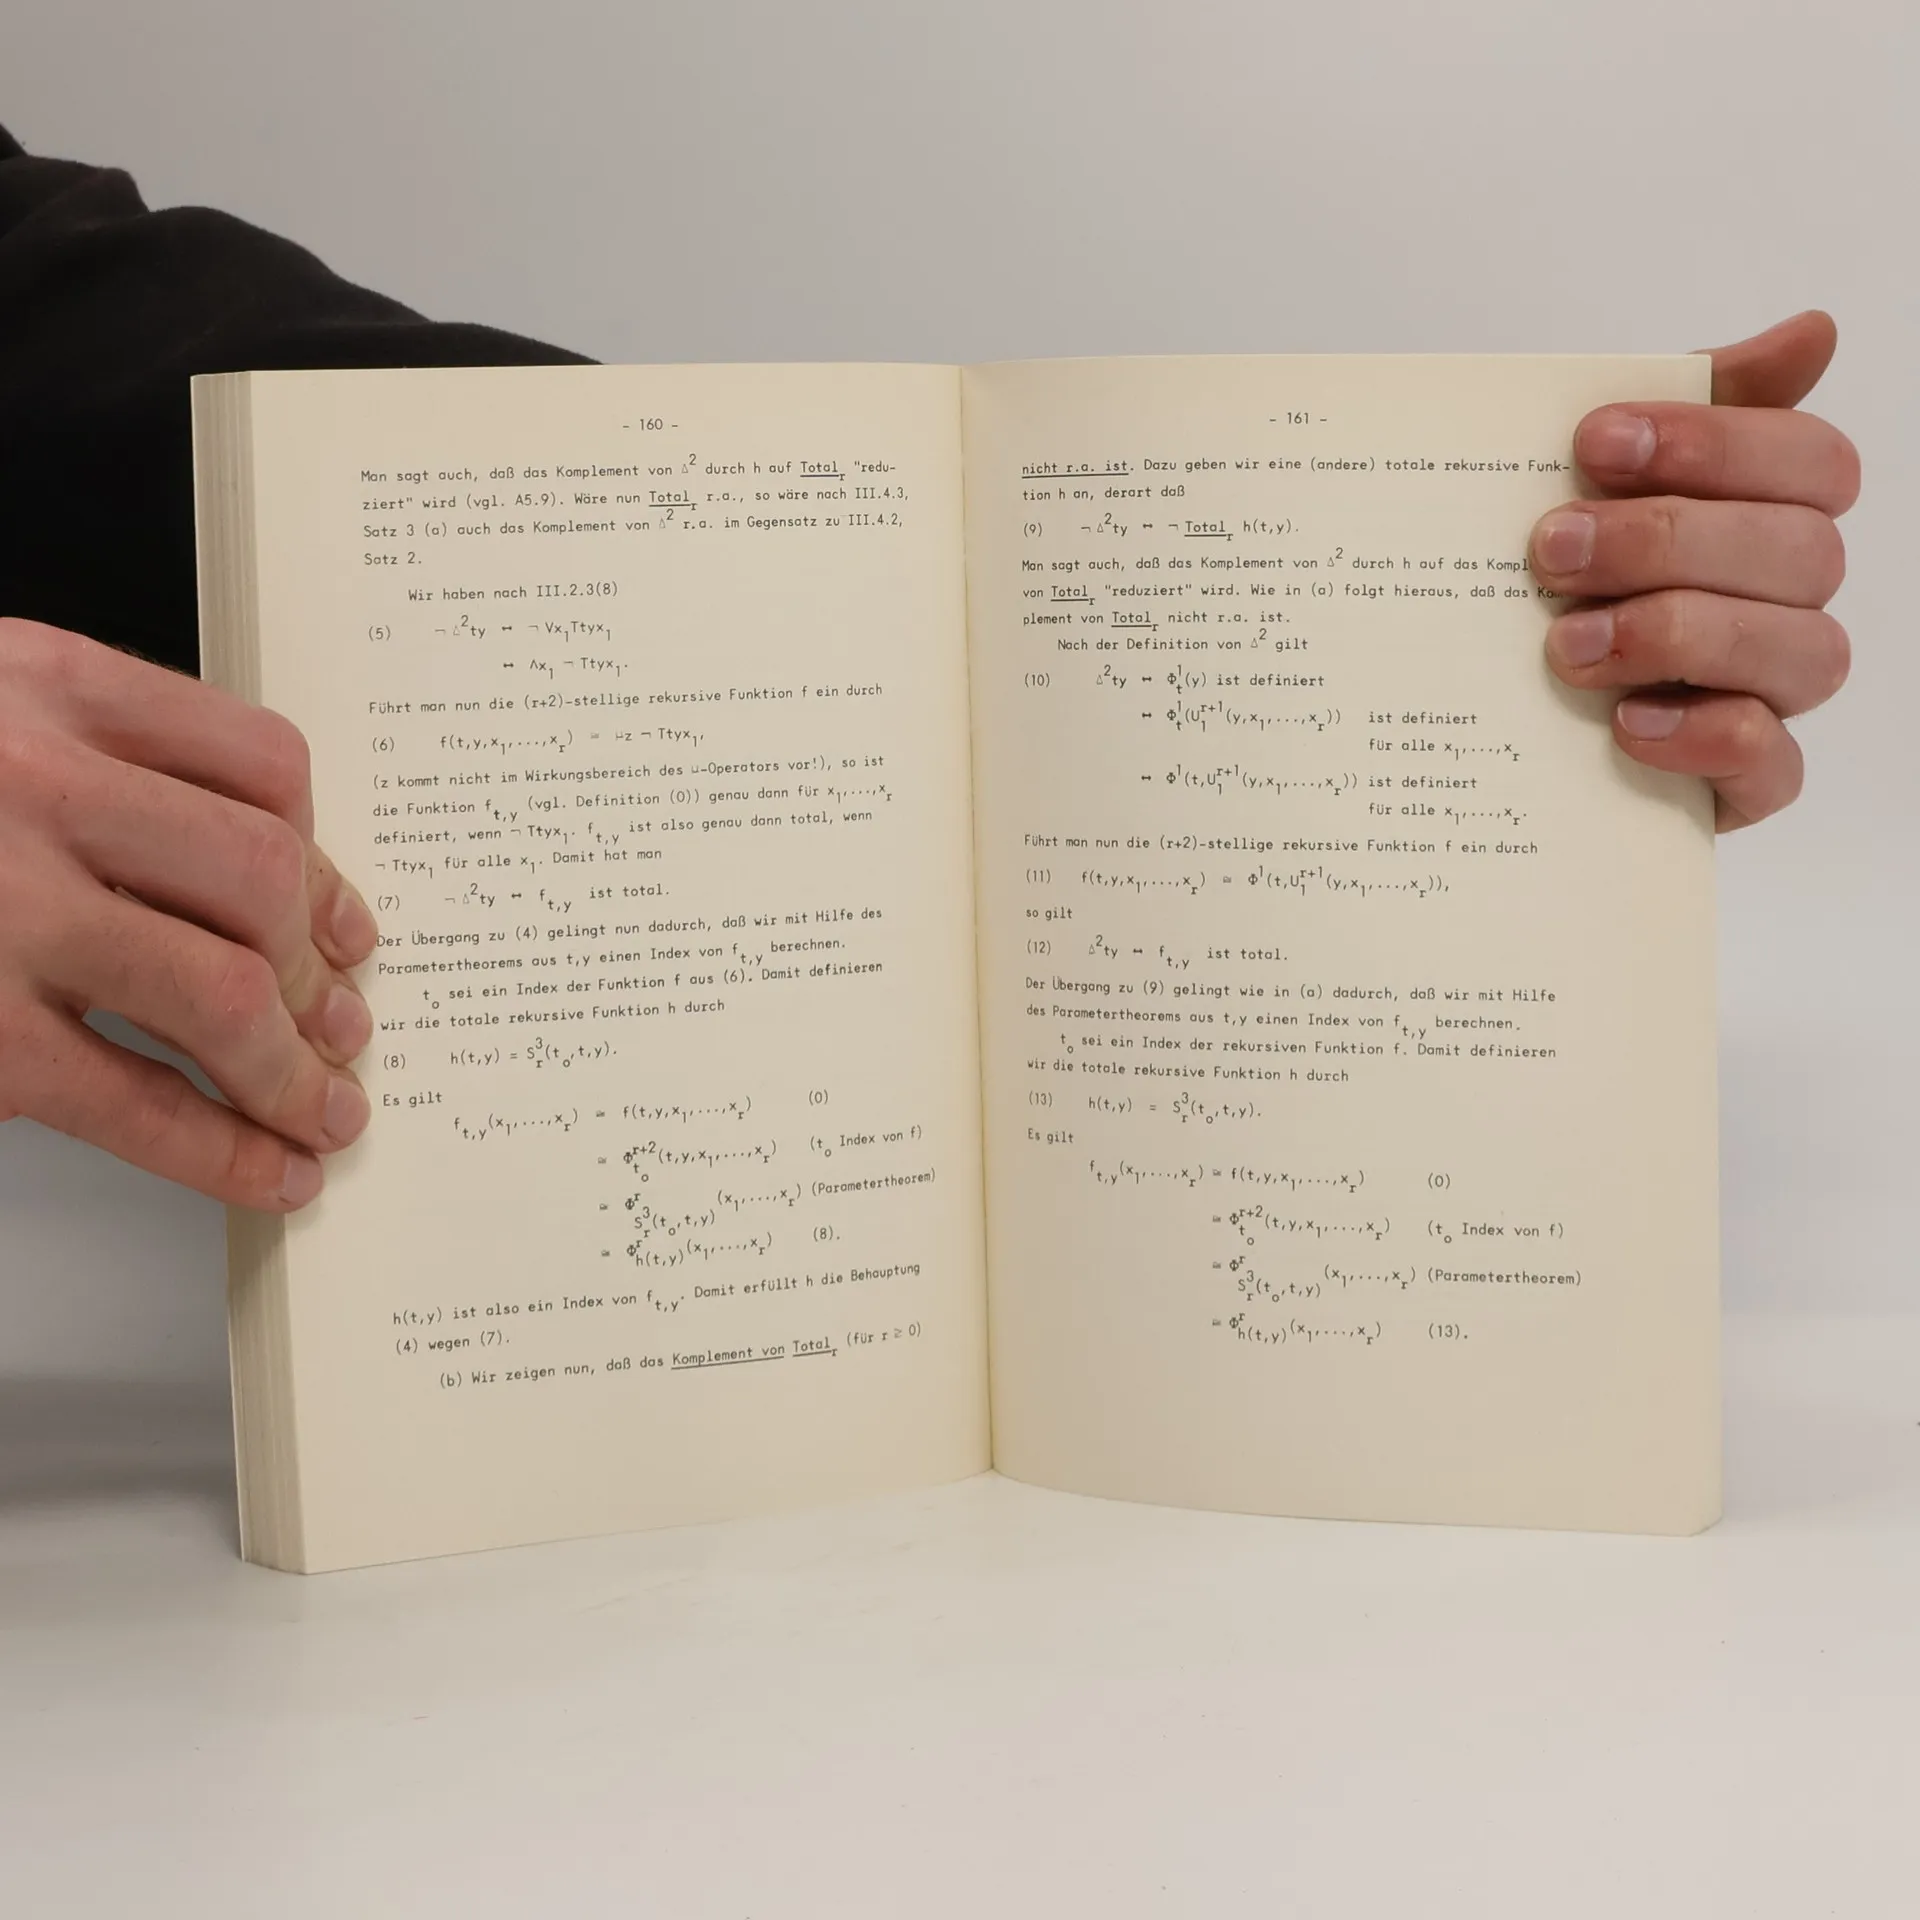 - 160 -
Man sagt auch, daß das Komplement von Δ² durch h auf Total_r "redu-
ziert" wird (vgl. A5.9). Wäre nun Total_r r.a., so wäre nach III.4.3,
Satz 3 (a) auch das Komplement von Δ² r.a. im Gegensatz zu III.4.2,
Satz 2.
Wir haben nach III.2.3(8)
(5) ¬ Δ²ty ↔ ¬ Vx₁Ttyx₁
↔ Λx₁ ¬ Ttyx₁.
Führt man nun die (r+2)-stellige rekursive Funktion f ein durch
(6) f(t,y,x₁,...,x_r) ≃ μz ¬ Ttyx₁,
(z kommt nicht im Wirkungsbereich des μ-Operators vor!), so ist
die Funktion f_t,y (vgl. Definition (0)) genau dann für x₁,...,x_r
definiert, wenn ¬ Ttyx₁. f_t,y ist also genau dann total, wenn
¬ Ttyx₁ für alle x₁. Damit hat man
(7) ¬ Δ²ty ↔ f_t,y ist total.
Der Übergang zu (4) gelingt nun dadurch, daß wir mit Hilfe des
Parametertheorems aus t,y einen Index von f_t,y berechnen.
t_o sei ein Index der Funktion f aus (6). Damit definieren
wir die totale rekursive Funktion h durch
(8) h(t,y) = S³_r(t_o,t,y).
Es gilt
f_t,y(x₁,...,x_r) ≃ f(t,y,x₁,...,x_r) (0)
≃ Φ^r+2_t_o(t,y,x₁,...,x_r) (t_o Index von f)
≃ Φ^r_S³_r(t_o,t,y)(x₁,...,x_r) (Parametertheorem)
≃ Φ^r_h(t,y)(x₁,...,x_r) (8).
h(t,y) ist also ein Index von f_t,y. Damit erfüllt h die Behauptung
(4) wegen (7).
(b) Wir zeigen nun, daß das Komplement von Total_r (für r ≥ 0)
- 161 -
nicht r.a. ist. Dazu geben wir eine (andere) totale rekursive Funk-
tion h an, derart daß
(9) ¬ Δ²ty ↔ ¬ Total_r h(t,y).
Man sagt auch, daß das Komplement von Δ² durch h auf das Kompl
von Total_r "reduziert" wird. Wie in (a) folgt hieraus, daß das Ko
plement von Total_r nicht r.a. ist.
Nach der Definition von Δ² gilt
(10) Δ²ty ↔ Φ¹_t(y) ist definiert
↔ Φ¹_t(U^r+1_1(y,x₁,...,x_r)) ist definiert
für alle x₁,...,x_r
↔ Φ¹(t,U^r+1_1(y,x₁,...,x_r)) ist definiert
für alle x₁,...,x_r.
Führt man nun die (r+2)-stellige rekursive Funktion f ein durch
(11) f(t,y,x₁,...,x_r) ≃ Φ¹(t,U^r+1_1(y,x₁,...,x_r)),
so gilt
(12) Δ²ty ↔ f_t,y ist total.
Der Übergang zu (9) gelingt wie in (a) dadurch, daß wir mit Hilfe
des Parametertheorems aus t,y einen Index von f_t,y berechnen.
t_o sei ein Index der rekursiven Funktion f. Damit definieren
wir die totale rekursive Funktion h durch
(13) h(t,y) = S³_r(t_o,t,y).
Es gilt
f_t,y(x₁,...,x_r) ≃ f(t,y,x₁,...,x_r) (0)
≃ Φ^r+2_t_o(t,y,x₁,...,x_r) (t_o Index von f)
≃ Φ^r_S³_r(t_o,t,y)(x₁,...,x_r) (Parametertheorem)
≃ Φ^r_h(t,y)(x₁,...,x_r) (13).